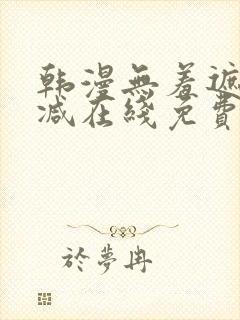 韩漫無羞遮
减在綫免費
於夢冉